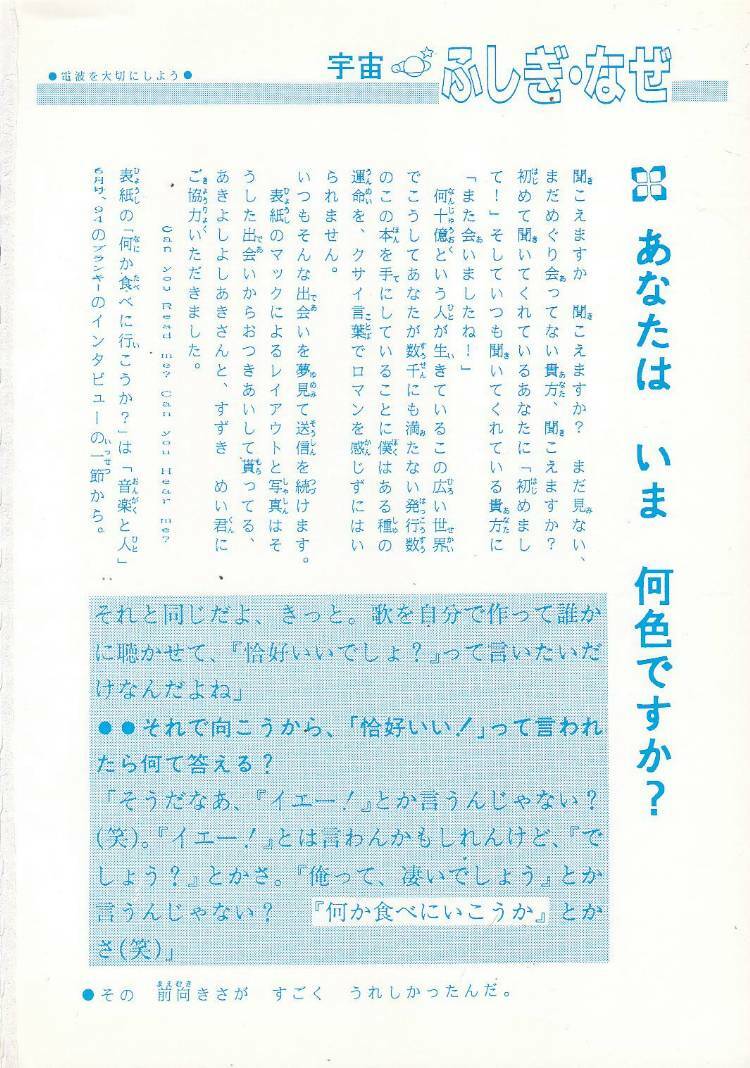 ●電波を大切にしよう●
宇宙 ふしぎ・なぜ
あなたは　いま　何色ですか？
聞こえますか　聞こえますか？　まだ見ない、
まだめぐり会ってない貴方、聞こえますか？
初めて聞いてくれているあなたに「初めまし
て！」そしていつも聞いてくれている貴方に
「また会いましたね！」
何十億という人が生きているこの広い世界
でこうしてあなたが数千にも満たない発行数
のこの本を手にしていることに僕はある種の
運命を、クサイ言葉でロマンを感じずにはい
られません。
いつもそんな出会いを夢見て送信を続けます。
表紙のマックによるレイアウトと写真はそ
うした出会いからおつきあいして貰ってる、
あきよしよしあきさんと、すずき　めい君に
ご協力いただきました。
Can you Read me? Can you Hear me?
表紙の「何か食べに行こうか？」は「音楽と人」
6月号、94のブランキーのインタビューの一節から。
それと同じだよ、きっと。歌を自分で作って誰か
に聴かせて、『恰好いいでしょ？』って言いたいだ
けなんだよね」
●●それで向こうから、「恰好いい！」って言われ
たら何て答える？
「そうだなあ、『イエー！』とか言うんじゃない？
(笑)。『イエー！』とは言わんかもしれんけど、『で
しょう？』とかさ。『俺って、凄いでしょう』とか
言うんじゃない？　『何か食べにいこうか』とか
さ(笑)」
●その　前向きさが　すごく　うれしかったんだ。